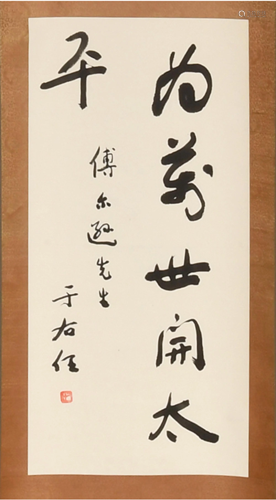 为萬世開太
平
傅尔遜先生
于右任